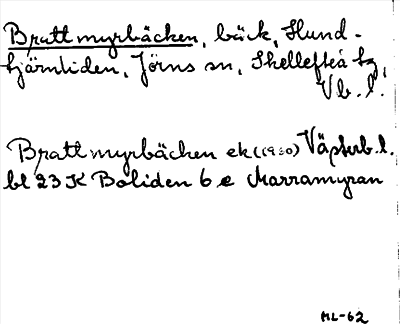 Brattmyrbäcken, bäck, Hund-
tjärnliden, Jörns sn, Skellefteå kg,
Vb. l.
Brattmyrbäcken ek (1960) Västerb. l.
bl 23 K Boliden 6 e Marramyran
ML-62